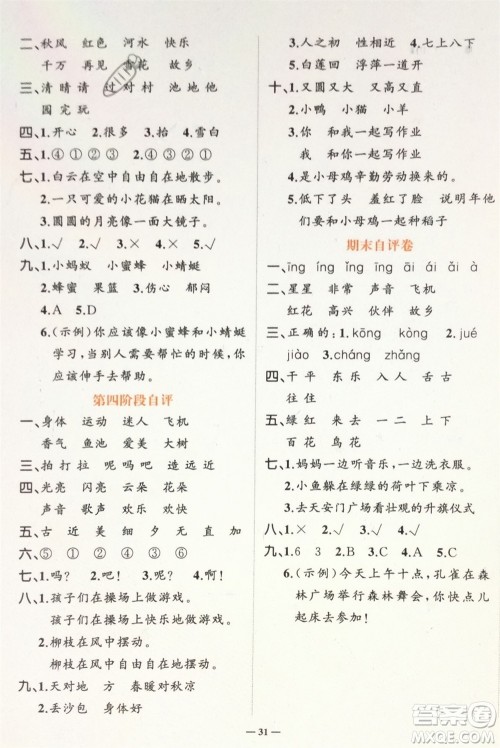 二、秋风 红色 河水 快乐
千万 再见 雪花 故乡
三、清晴请 过对村 池地他
园完玩
四、1.开心 2.很多 3.抬 4.雪白
五、④ ① ② ③ ① ② ① ②
七、1.白云在空中自由自在地散步。
2.一只可爱的小花猫在晒太阳。
3.圆圆的月亮像一面大镜子。
八、1.√ 2.√ 3.× 4.√
九、1.小蚂蚁 小蜜蜂 小蜻蜓
2.蜂蜜 果篮 3.伤心 郁闷
4.A 5.D
6.(示例)你应该像小蜜蜂和小蜻蜓
学习,当别人需要帮忙的时候,你
应该伸手去帮助。
第四阶段自评
一、身体 运动 迷人 飞机
香气 鱼池 爱美 大树
三、拍打拉 呢吗吧 造远近
四、光亮 闪亮 云朵 花朵
声音 歌声 欢乐 快乐
五、古 近 美 细 夕 无 直 加
六、⑤ ④ ② ① ③ ⑥
七、1.吗? 2.吧! 3.呢? 4.吗?
八、1.孩子们在操场上做游戏。
孩子们在操场上快乐地做游戏。
2.柳枝在风中摆动。
柳枝在风中自由自在地摆动。
九、1.天对地 方 春暖对秋凉
2.丢沙包 身体好
3.人之初 性相近 4.七上八下
5.白莲回 浮萍一道开
十、1.又圆又大 又高又直
2.小鸭 小猫 小羊
你 和我一起写作业
你 和我一起写作业
3.是小母鸡辛勤劳动换来的。
5.低下了头 羞红了脸 说明年他
们要和小母鸡一起种稻子
期末自评卷
一、īng íng ǐng āi ái ǎi ài
二、星星 非常 声音 飞机
红花 高兴 伙伴 故乡
三、(正确的)1.kōng kòng 2.jué
jiào 3.cháng zhǎng
四、干平 东乐 入人 舌古
住往
五、绿红 来去 一二 上下
百花 鸟花
七、1.妈妈一边听音乐,一边洗衣服。
2.小鱼躲在绿绿的荷叶下乘凉。
3.去天安门广场看壮观的升旗仪式
八、1.√ 2.× 3.× 4.√ 5.√
九、1.6 3 2.B 3.B 4.A 5.C
6.(示例)今天上午十点,孔雀在森
林广场举行森林舞会,你快点儿
起床去参加!
— 31 —
答案圈
MXQE.COM